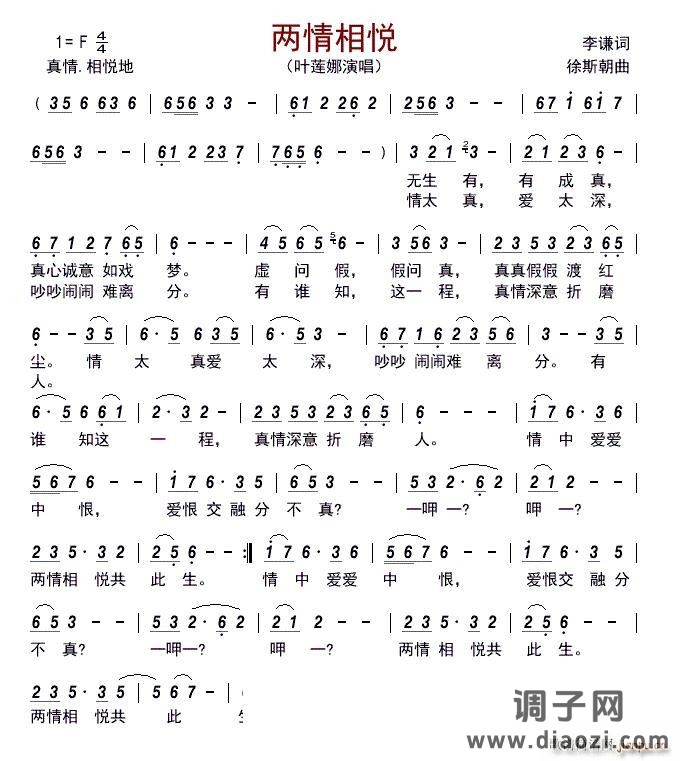 两情相悦
1= F 4/4
李谦词
真情.相悦地
（叶莲娜演唱）
徐斯朝曲
( 3 5 6 6 3 6 | 6 5 6 3 3 - - | 6 1 2 2 6 2 | 2 5 6 3 - - | 6 7 i 6 i 7 |
6 5 6 3 - - | 6 1 2 2 3 7 | 7 6 5 6 - - ) | 3 2 1 3 - | 2 1 2 3 6 - |
无生 有， 有 成 真，
情太 真， 爱 太 深，
6 7 1 2 7 6 5 | 6 - - - | 4 5 6 5 6 - | 3 5 6 3 - | 2 3 5 3 2 3 6 5 |
真心诚意 如戏 梦。 虚 问 假， 假问 真， 真真假假 渡 红
吵吵闹闹 难离 分。 有 谁 知， 这一 程， 真情深意 折 磨
6 - - 3 5 | 6 · 5 6 3 5 | 2 · 5 3 - | 6 7 1 6 2 3 5 6 | 3 - - 3 5 |
尘。 情 太 真爱 太 深， 吵吵 闹闹难 离 分。 有
人。
6 · 5 6 6 1 | 2 · 3 2 - | 2 3 5 3 2 3 6 5 | 6 - - - | i 7 6 · 3 |
谁 知这 一 程， 真情深意 折 磨 人。 情 中 爱爱
5 6 7 6 - | i 7 6 · 3 2 3 | 6 5 3 - | 5 3 2 · 6 | 2 1 2 - |
中 恨， 爱恨 交 融分 不 真? 一呷 一? 呷 一?
2 3 5 · 3 2 | 2 5 6 - - :| i 7 6 · 3 | 5 6 7 6 - | i 7 6 · 3 2 3 |
两情相 悦共 此 生。 情 中 爱爱 中 恨， 爱恨交 融分
6 5 3 - | 5 3 2 · 6 | 2 1 2 - | 2 3 5 · 3 2 | 2 5 6 - - |
不 真? 一呷一? 呷 一? 两情 相 悦共 此 生。
2 3 5 · 3 5 | 5 6 7 - -
两情相 悦共 此
调子网
www.diaozi.com